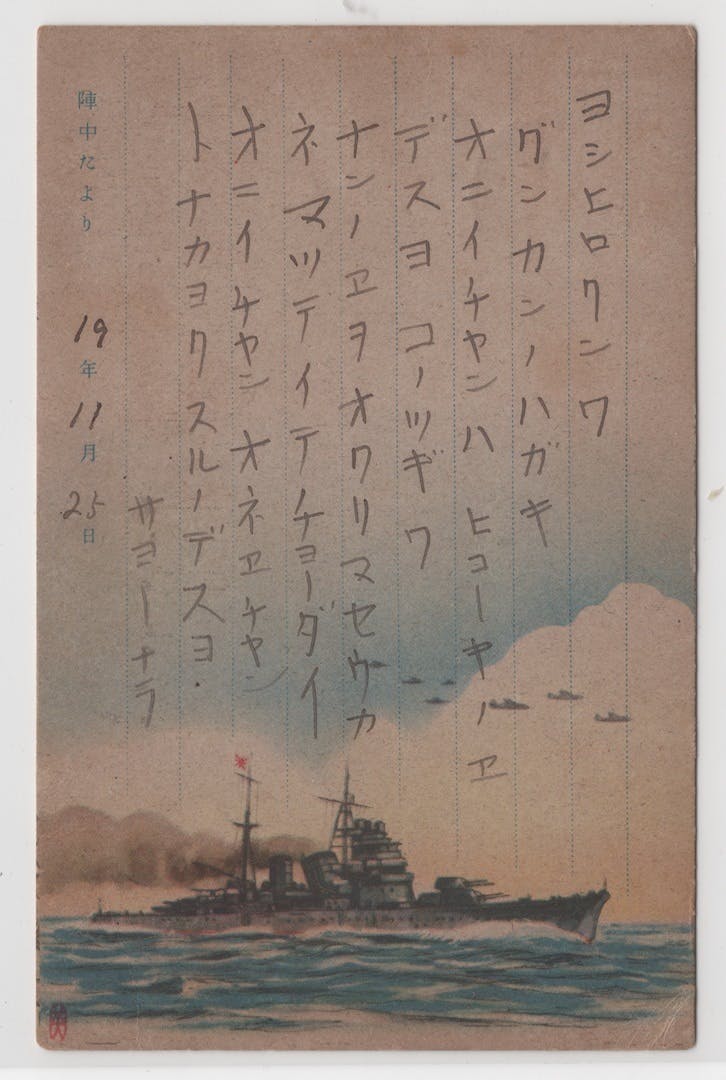 ヨシヒロクンワ
グンカンノハガキ
オニイチャンハ ヒョーキノヱ
デスヨ コノツギワ
ナンノヱヲオクリマセウカ
ネ マツテイテチョーダイ
オニイチャン オネヱチャン
トナカヨクスルノデスヨ.
サヨーナラ
陣中たより 19年11月25日